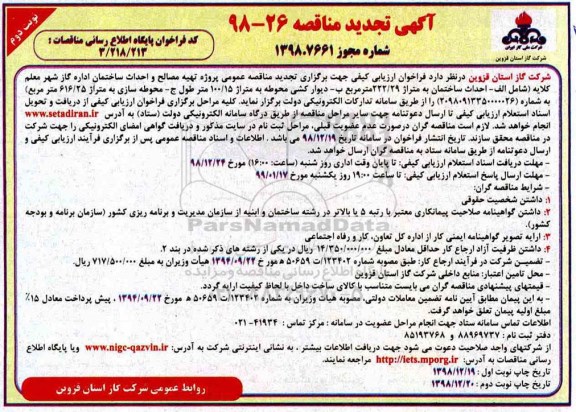 نوبت دوم
آگهی تجدید مناقصه ۲۶-۹۸
شماره مجوز ۱۳۹۸.۷۶۶۱
کد فراخوان پایگاه اطلاع رسانی مناقصات :
۳/۲۱۸/۲۱۳
شرکت ملی گاز ایران
شرکت گاز استان قزوین
شرکت گاز استان قزوین درنظر دارد فراخوان ارزیابی کیفی جهت برگزاری تجدید مناقصه عمومی پروژه تهیه مصالح و احداث ساختمان اداره گاز شهر معلم
کلایه (شامل الف - احداث ساختمان به متراژ ۲۲۲/۲۹مترمربع ب- دیوار کشی محوطه به متراژ ۱۰۰/۱۵ متر طول ج- محوطه سازی به متراژ ۶۱۶/۲۵ متر مربع)
به شماره (۲۰۹۸۰۹۱۳۳۵۰۰۰۰۲۶) را از طریق سامانه تدارکات الکترونیکی دولت برگزار نماید. کلیه مراحل برگزاری فراخوان ارزیابی کیفی از دریافت و تحویل
اسناد استعلام ارزیابی کیفی تا ارسال دعوتنامه جهت سایر مراحل مناقصه از طریق درگاه سامانه الکترونیکی دولت (ستاد) به آدرس www.setadiran.ir
انجام خواهد شد. لازم است مناقصه گران درصورت عدم عضویت قبلی، مراحل ثبت نام در سایت مذکور و دریافت گواهی امضای الکترونیکی را جهت شرکت
در مناقصه محقق سازند. تاریخ انتشار فراخوان در سامانه تاریخ ۹۸/۱۲/۱۹ می باشد. اطلاعات و اسناد مناقصه عمومی پس از برگزاری فرآیند ارزیابی کیفی و
ارسال دعوتنامه از طریق سامانه ستاد به مناقصه گران ارسال خواهد شد.
- مهلت دریافت اسناد استعلام ارزیابی کیفی: تا پایان وقت اداری روز شنبه (ساعت: ۱۶:۰۰) مورخ ۹۸/۱۲/۲۴
- مهلت ارسال پاسخ استعلام ارزیابی کیفی: تا ساعت ۱۹:۰۰ روز یکشنبه مورخ ۹۹/۰۱/۱۷
- شرایط مناقصه گران:
۱: داشتن شخصیت حقوقی
۲: داشتن گواهینامه صلاحیت پیمانکاری معتبر با رتبه ۵ یا بالاتر در رشته ساختمان و ابنیه از سازمان مدیریت و برنامه ریزی کشور (سازمان برنامه و بودجه
کشور).
۳: ارایه تصویر گواهینامه ایمنی کار از اداره کل تعاون، کار و رفاه اجتماعی
۴: داشتن ظرفیت آزاد ارجاع کار حداقل معادل مبلغ ۱۴/۳۵۰/۰۰۰/۰۰۰ ریال در یکی از رشته های ذکر شده در بند ۲.
- تضمین شرکت در فرآیند ارجاع کار: طبق مصوبه شماره ۱۲۳۴۰۲/ت ۵۰۶۵۹ ه مورخ ۱۳۹۴/۰۹/۲۲ هیأت وزیران به مبلغ ۷۱۷/۵۰۰/۰۰۰ ریال.
- محل تامین اعتبار: منابع داخلی شرکت گاز استان قزوین
- قیمتهای پیشنهادی مناقصه گران می بایست متناسب با کالای ساخت داخل با لحاظ کیفیت ارایه گردد.
- به این پیمان مطابق آیین نامه تضمین معاملات دولتی، مصوبه هیأت وزیران به شماره ۱۲۳۴۰۲/ت ۵۰۶۵۹ ه مورخ ۱۳۹۴/۰۹/۲۲ ، پیش پرداخت معادل ۱۵٪
مبلغ اولیه پیمان تعلق خواهد گرفت.
اطلاعات تماس سامانه ستاد جهت انجام مراحل عضویت در سامانه : مرکز تماس : ۴۱۹۳۴-۰۲۱
دفتر ثبت نام : ۸۸۹۶۹۷۳۷ و ۸۵۱۹۳۷۶۸
از شرکتهای واجد صلاحیت دعوت می شود جهت دریافت اطلاعات بیشتر ، به نشانی اینترنتی شرکت به آدرس: www.nigc-qazvin.ir ویا پایگاه اطلاع
رسانی مناقصات به آدرس: http://iets.mporg.ir مراجعه نمایند.
تاریخ چاپ نوبت اول : ۱۳۹۸/۱۲/۱۹
تاریخ چاپ نوبت دوم : ۱۳۹۸/۱۲/۲۰
روابط عمومی شرکت گاز استان قزوین
ParsNamadData